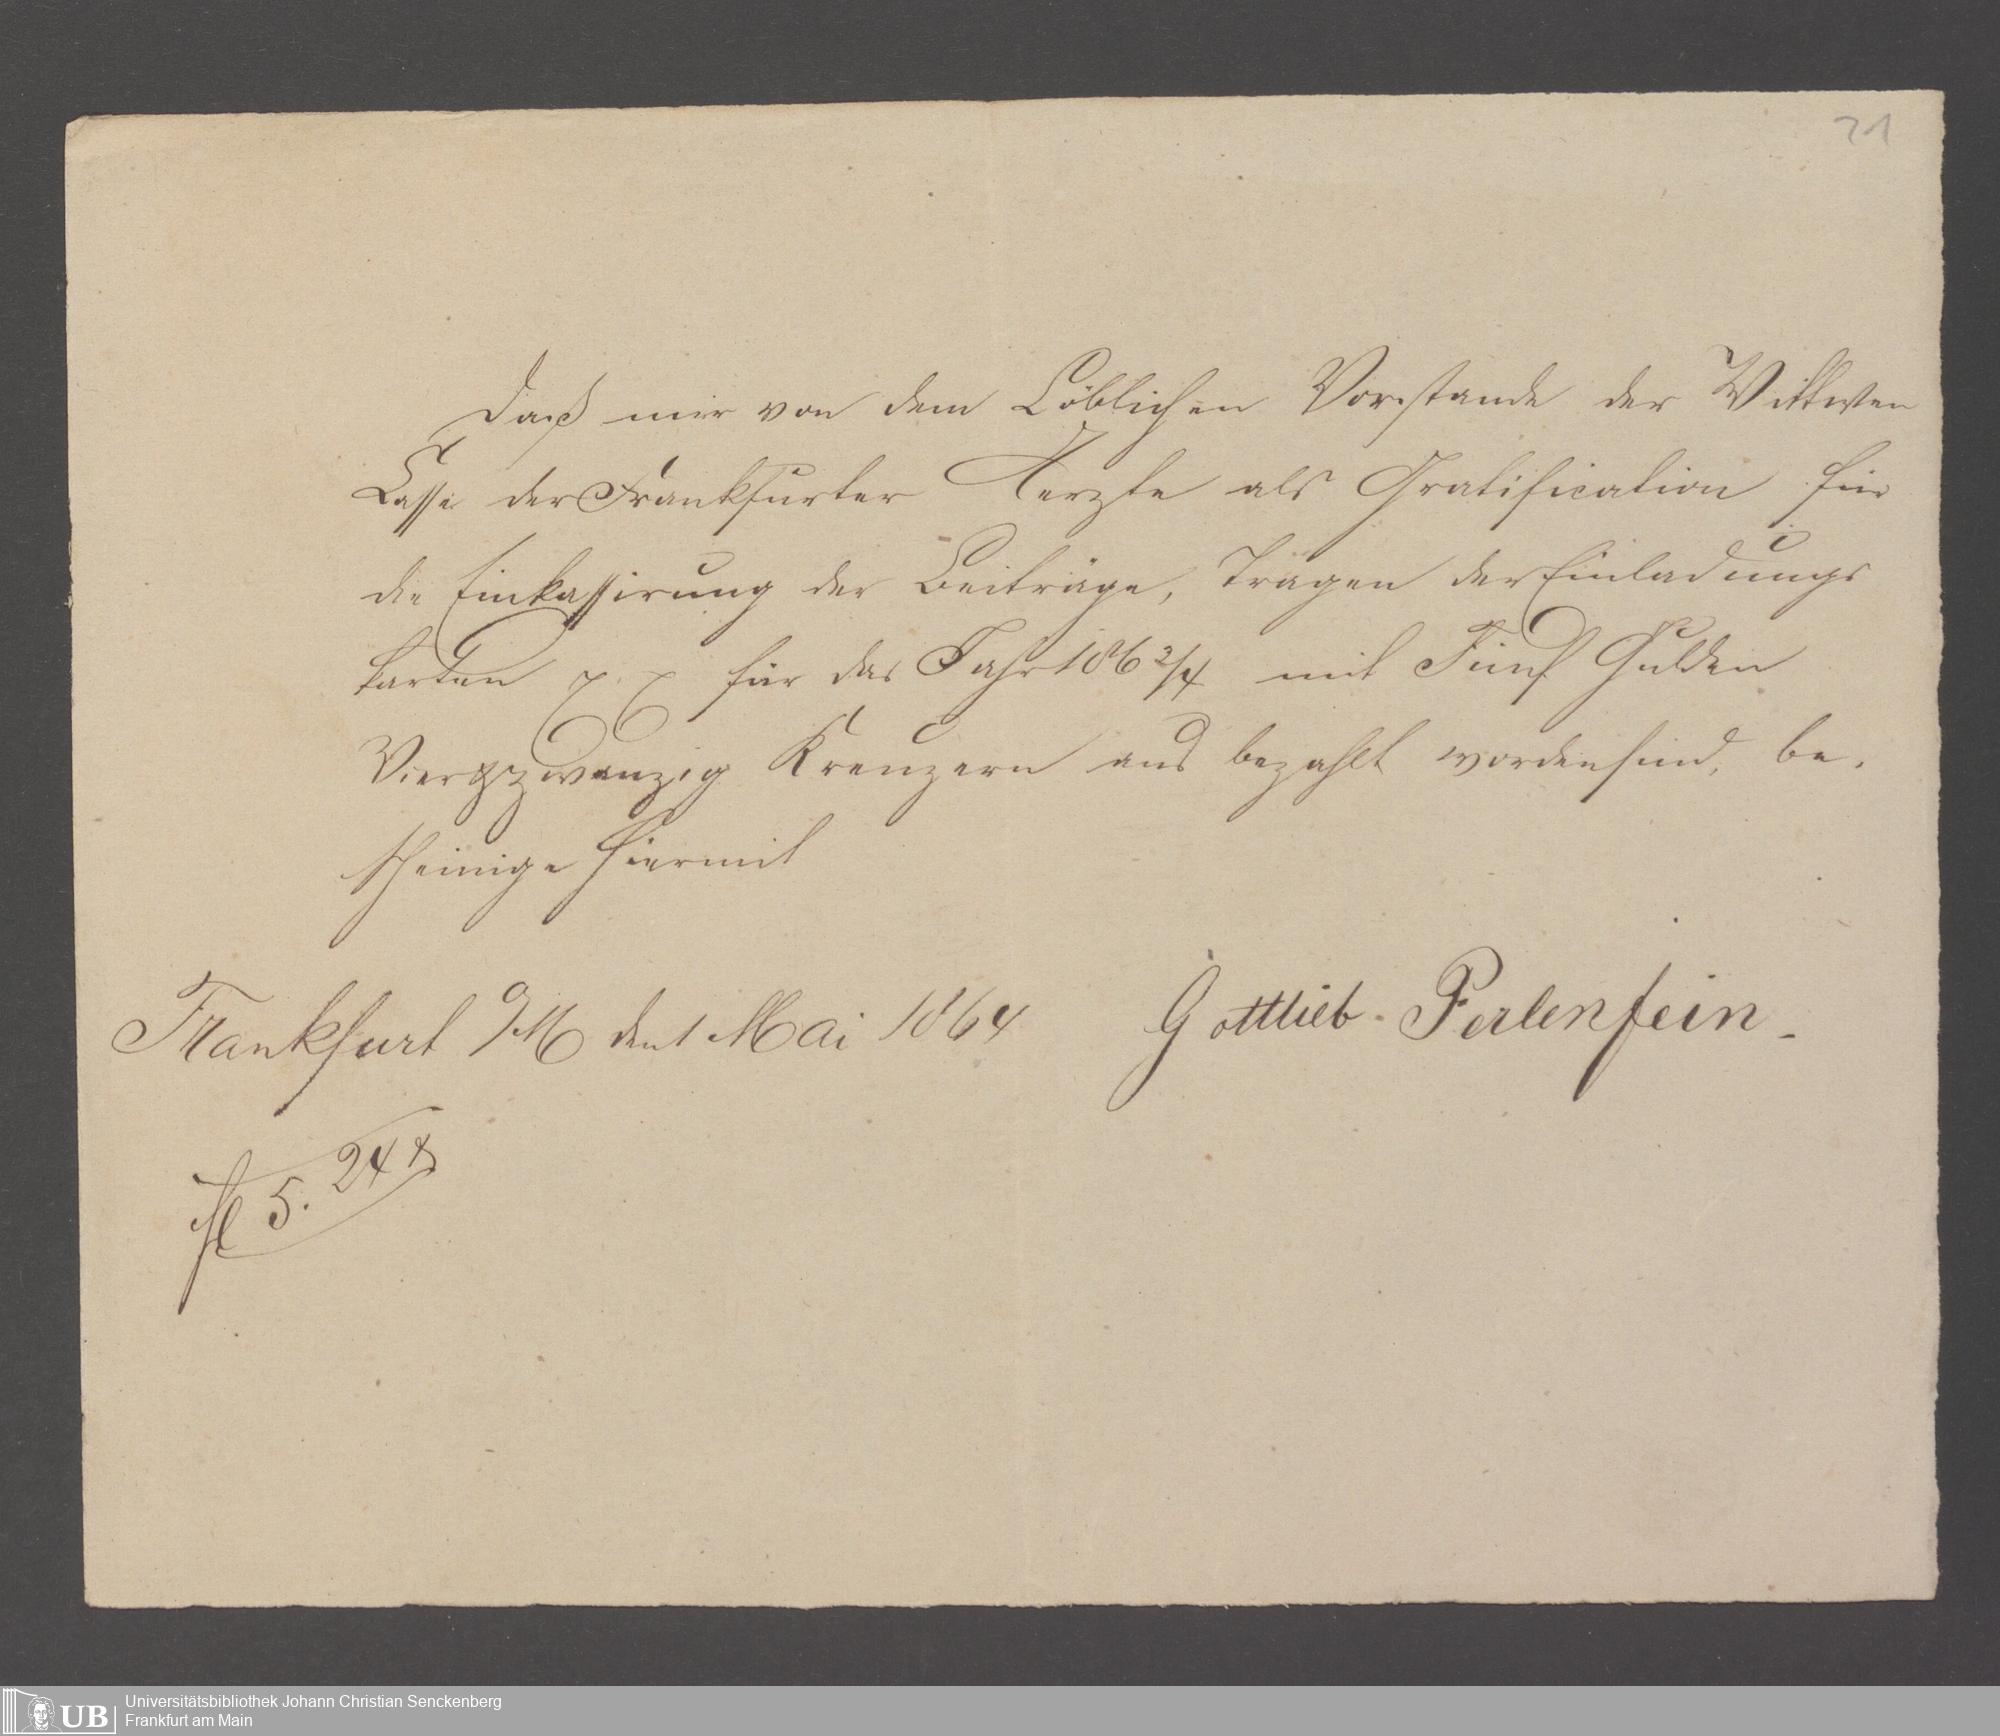 21
Daß mir von dem Löblichen Vorstande der Wittwen
Casse der Frankfurter Aerzte als Gratification für
die Einkassirung der Beiträge, Tragen der Einladungs
karten für das Jahr 186 3/4 mit Fünf Gulden
Vier zwanzig Kreuzern aus bezahlt worden sind, be-
scheinige hiermit
Frankfurt a/M den 1 Mai 1864 Gottlieb Perlenfein.
fl 5. 24 x
UB Universitätsbibliothek Johann Christian Senckenberg
Frankfurt am Main